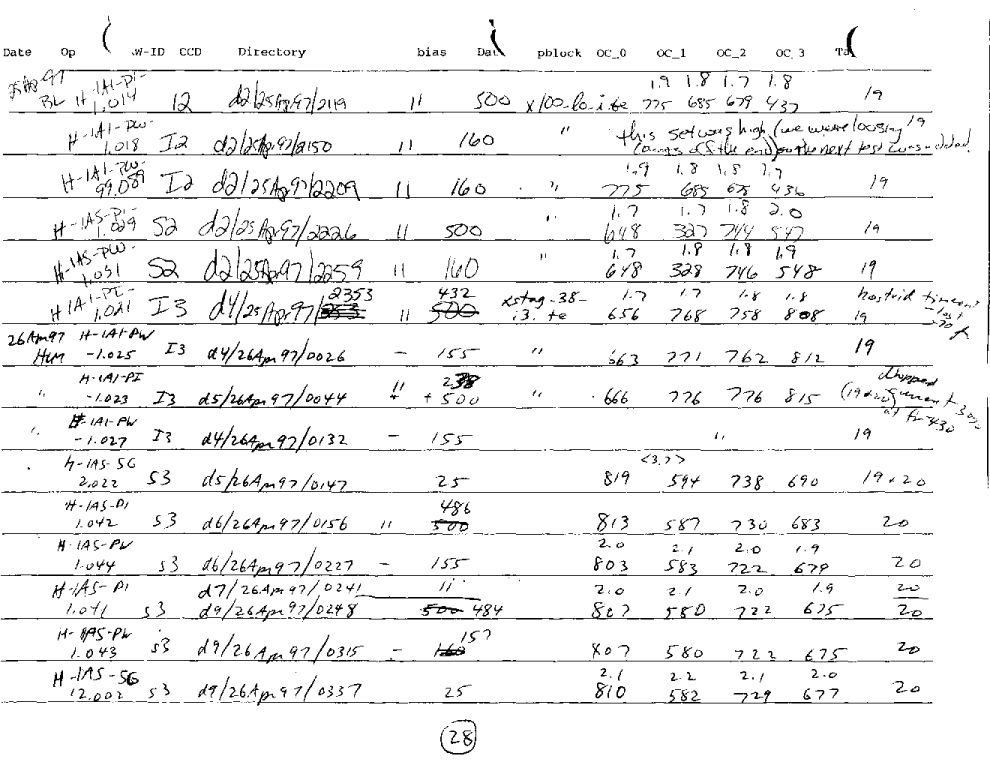 Date Op W-ID CCD Directory bias Dat pblock OC_0 OC_1 OC_2 OC_3 Ta
25Apr97 H-IAI-PI- 1.9 1.8 1.7 1.8
BL 1.014 I2 d2/25Apr97/2119 11 500 x100-lo-i.te 775 685 679 437 19
H-IAI-PW- this set was high (we were loosing 19
1.018 I2 d2/25Apr97/2150 11 160 " off the end) so the next test was added.
H-IAI-PW- 1.9 1.8 1.8 1.7
99.089 I2 d2/25Apr97/2209 11 160 " 775 685 675 436 19
H-IAS-PI- 1.7 1.7 1.8 2.0
1.029 S2 d2/25Apr97/2226 11 500 " 648 327 744 547 19
H-IAS-PW- 1.7 1.8 1.8 1.9
1.031 S2 d2/25Apr97/2259 11 160 " 648 328 746 548 19
H-IAI-PI- 2353 432 xstag-38- 1.7 1.7 1.8 1.8 hostvid timeout
1.021 I3 d4/25Apr97/ 11 500 i3.te 656 768 758 808 19 - lost
26Apr97 H-IAI-PW
HLM -1.025 I3 d4/26Apr97/0026 - 155 " 663 771 762 812 19
H-IAI-PI 238 dropped
" -1.023 I3 d5/26Apr97/0044 11 + 500 " 666 776 776 815 (19+20) at fr 430
H-IAI-PW
" -1.027 I3 d4/26Apr97/0132 - 155 " 19
H-IAS-SG <3.7>
2.022 S3 d5/26Apr97/0147 25 819 594 738 690 19+20
H-IAS-PI 486
1.042 S3 d6/26Apr97/0156 11 500 813 587 730 683 20
H-IAS-PW 2.0 2.1 2.0 1.9
1.044 S3 d6/26Apr97/0227 - 155 803 583 722 679 20
H-IAS-PI d7/26Apr97/0241 11 2.0 2.1 2.0 1.9 20
1.041 S3 d9/26Apr97/0248 500 484 807 580 722 675 20
H-IAS-PW 157
1.043 S3 d9/26Apr97/0315 - 160 807 580 722 675 20
H-IAS-SG 2.1 2.2 2.1 2.0
12.002 S3 d9/26Apr97/0337 25 810 582 729 677 20
28